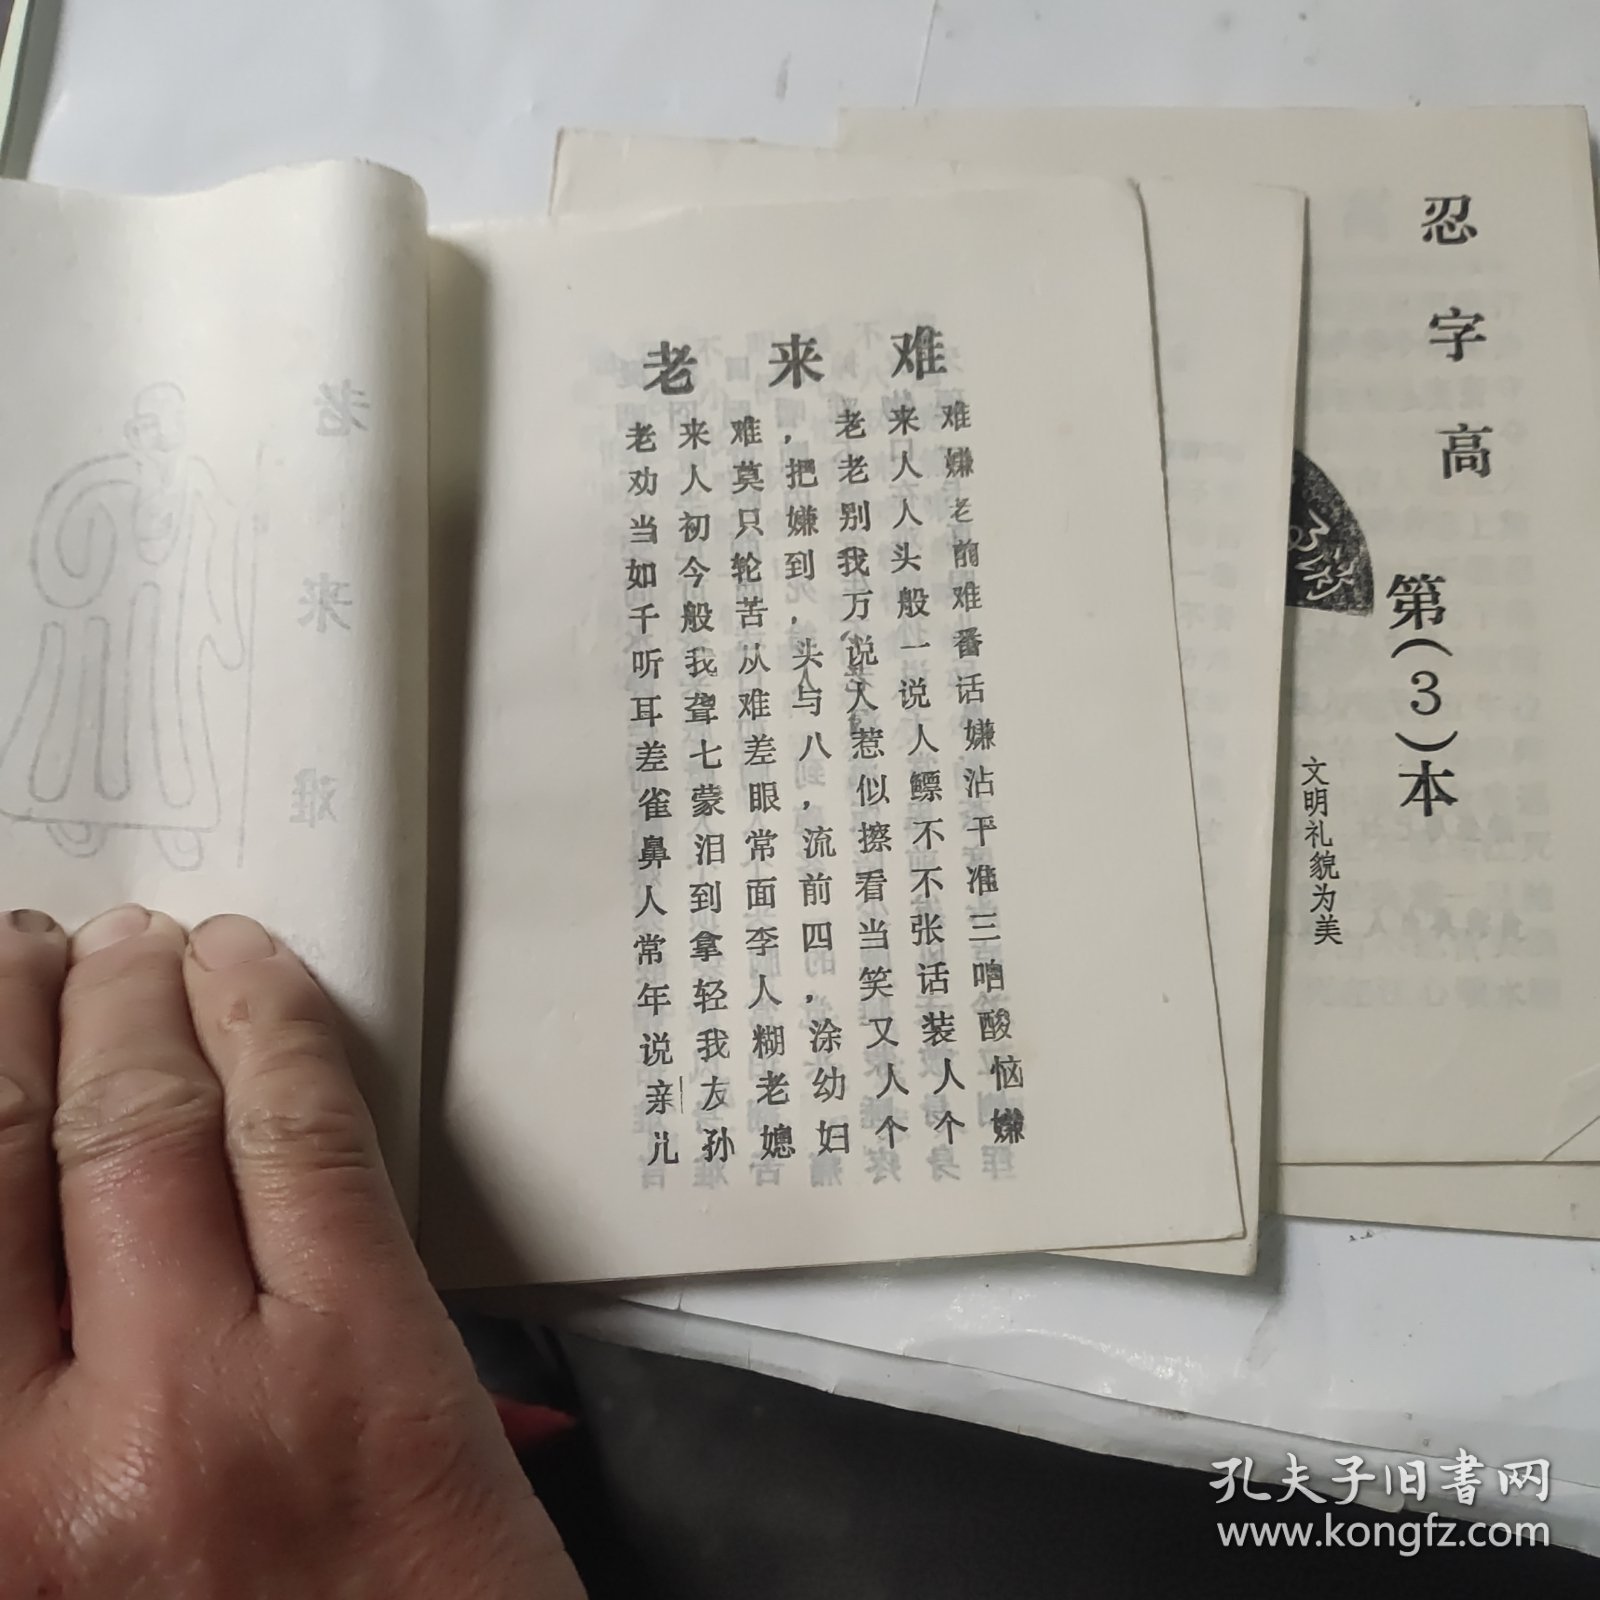 老来难
老来难，老来难
劝人莫把老人嫌
当初只嫌别人老
如今轮到我头前
千般苦，万般难
听我从头说一番
耳聋难与人说话
差七差八惹人嫌
雀蒙眼，似鳔沾
鼻泪常流擦不干
人到面前看不准
常拿李四当张三
年轻人，笑话咱
说我糊涂又装酸
亲友老幼人人恼
儿孙媳妇个个嫌
忍字高
第(3)本
文明礼貌为美
老来难
孔夫子旧书网
www.kongfz.com